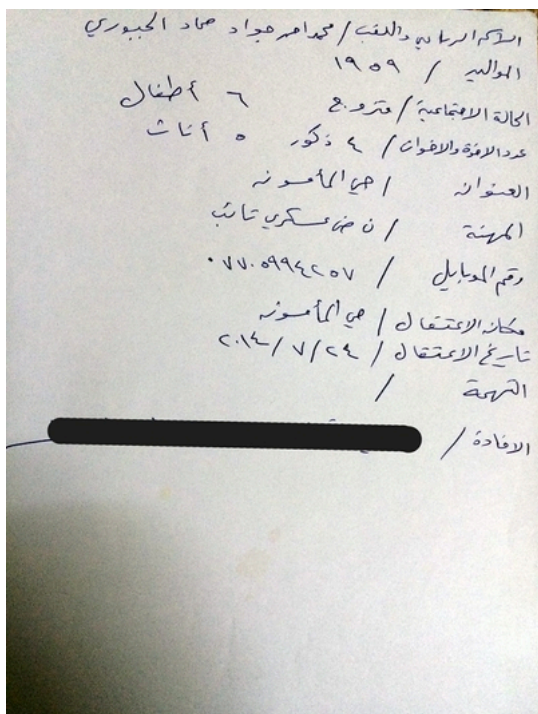 الاسم الرباعي واللقب / محمد احمد جواد حماد الجبوري
المواليد / ١٩٥٩
الحالة الاجتماعية / متزوج ٦ أطفال
عدد الاخوة والاخوات / ٤ ذكور ٥ أناث
العنوان / حي المأمون
المهنة / ن ض عسكري تائب
رقم الموبايل / ٠٧٧٠٥٩٩٤٢٥٧
مكان الاعتقال / حي المأمون
تاريخ الاعتقال / ٢٤ / ٧ / ٢٠١٤
التهمة /
الافادة /